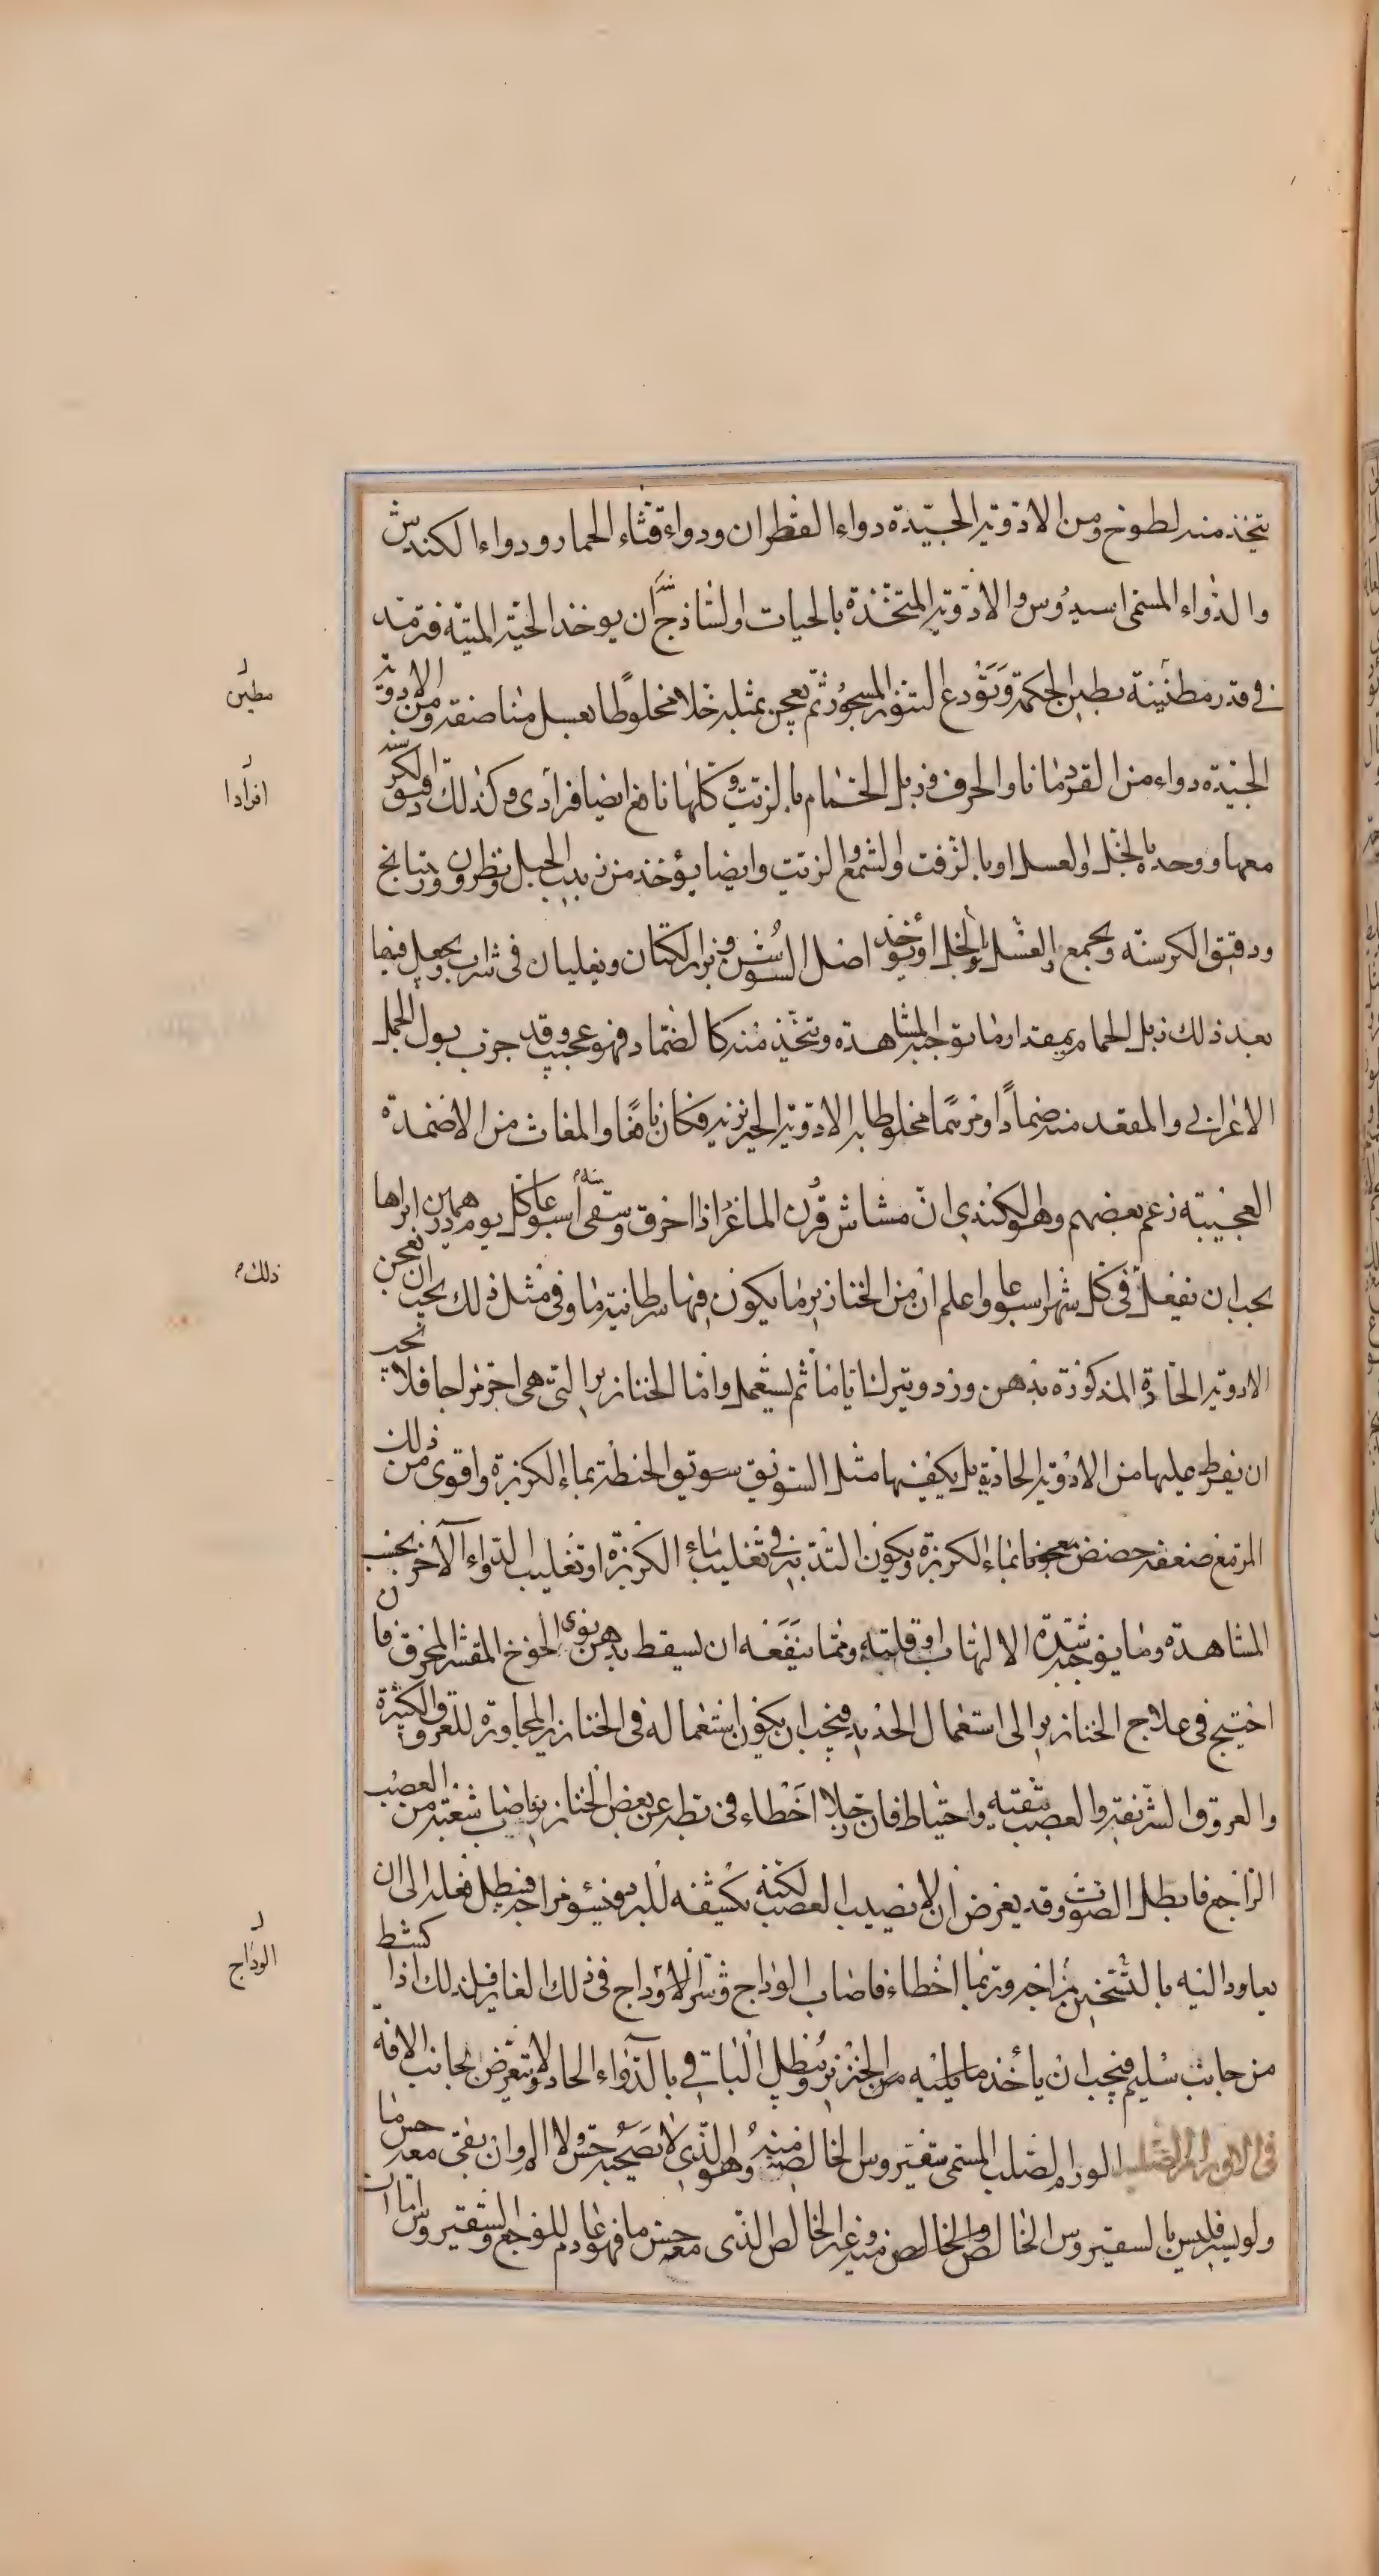 يتخذ منه لطوخ ومن الادوية الجيّدة دواء القطران ودواء قثاء الحمار ودواء الكندس
والدواء المسمى اسيدوس والادوية المتخذة بالحيات او لساذج ان يوخذ الحية الميتة فترمد
في قدر مطينة بطين الحكمة وتودع التنور المسجور ثم يعجن بمثله خلا مخلوطا بعسل مناصفة ومن الادوية
الجيدة دواء من القردمانا والحرف وذبل الحمام بالزيت وكلها نافع ايضا فرادى وكذلك دقيق الكرسنه
معها ووحده بالخل والعسل او بالزفت والشمع والزيت وايضا يؤخذ من زبيب الجبل ونطرون وريتايخ
ودقيق الكرسنه ويجمع والعسل بالخل او يؤخذ اصل السوسن وبزر الكتان ويغليان في شراب ويجعل فيها
بعد ذلك زبل الحمام بمقدار ما توجبه المشاهدة ويتخذ منه كالضماد فهو عجيب وقد جرب بول الجمل
الاعرابي والمعقد منه ضمادا ومرهما مخلوطا به الادوية الخنزيرية فكان نافعا والمغاث من الاضمدة
العجيبة زعم بعضهم وهو الكندي ان مشاش قرن الماعز اذا احرق وسقى اسبوعا كل يوم درهمين ابراها
يجب ان نفعل في كل شهر اسبوعا واعلم ان من الخنازير ما يكون فيها سرطانية ما وفي مثل ذلك يجب ان يعجن
الادوية الحادة المذكورة بدهن ورد ويترك اياما ثم يستعمل واما الخنازير التي هي احر مزاجا فلا يجب
ان يفرط عليها من الادوية الحادة بل يكفيها مثل السويق سويق الحنطة بماء الكزبرة واقوى من ذلك
المر مع ضعفه حضض معجونا بماء الكزبرة ويكون التدبير في تغليب ماء الكزبرة او تغليب الدواء الآخر بحسب
المشاهدة وما يوجبه شدة الالتهاب او قلته ومما ينفعه ان يسقط بدهن نوى الخوخ المقشر المحرق فان
احتيج في علاج الخنازير الى استعمال الحديد فيجب ان يكون استعماله في الخنازير المجاورة للعروق الكثيرة
والعروق الشريفة والعصب بتقية واحتياط فان رجلا اخطاء في بطه عن بعض الخنازير فاصاب شعبة من العصب
الراجع فابطل الصوت وقد يعرض ان لا يصيب العصب لكنه يكشفه للبرد ويسؤ مزاجه فيبطل فعله الى ان
يعاود اليه بالتسخين مزاجه وربما اخطاء فاصاب الوداج وشر الاوداج في ذلك الغاير فلذلك اذا كشط
من جانب سليم فيجب ان ياخذ ما يليه من الخنزير ويبطل الباقي بالدواء الحاد ولا يتعرض لجانب الافة
في الاورام الصلبه الورم الصلب المسمى سقيروس الخالص منه وهو الذي لا يصحبه حس ولا الم وان بقى معه حس ما
ولو يسير فليس بالسقيروس الخالص والخالص منه وغير الخالص الذي معه حس ما فهو عادم للوجع والسقيروس اما ان
مطين
افرادا
ذلك
الوداج